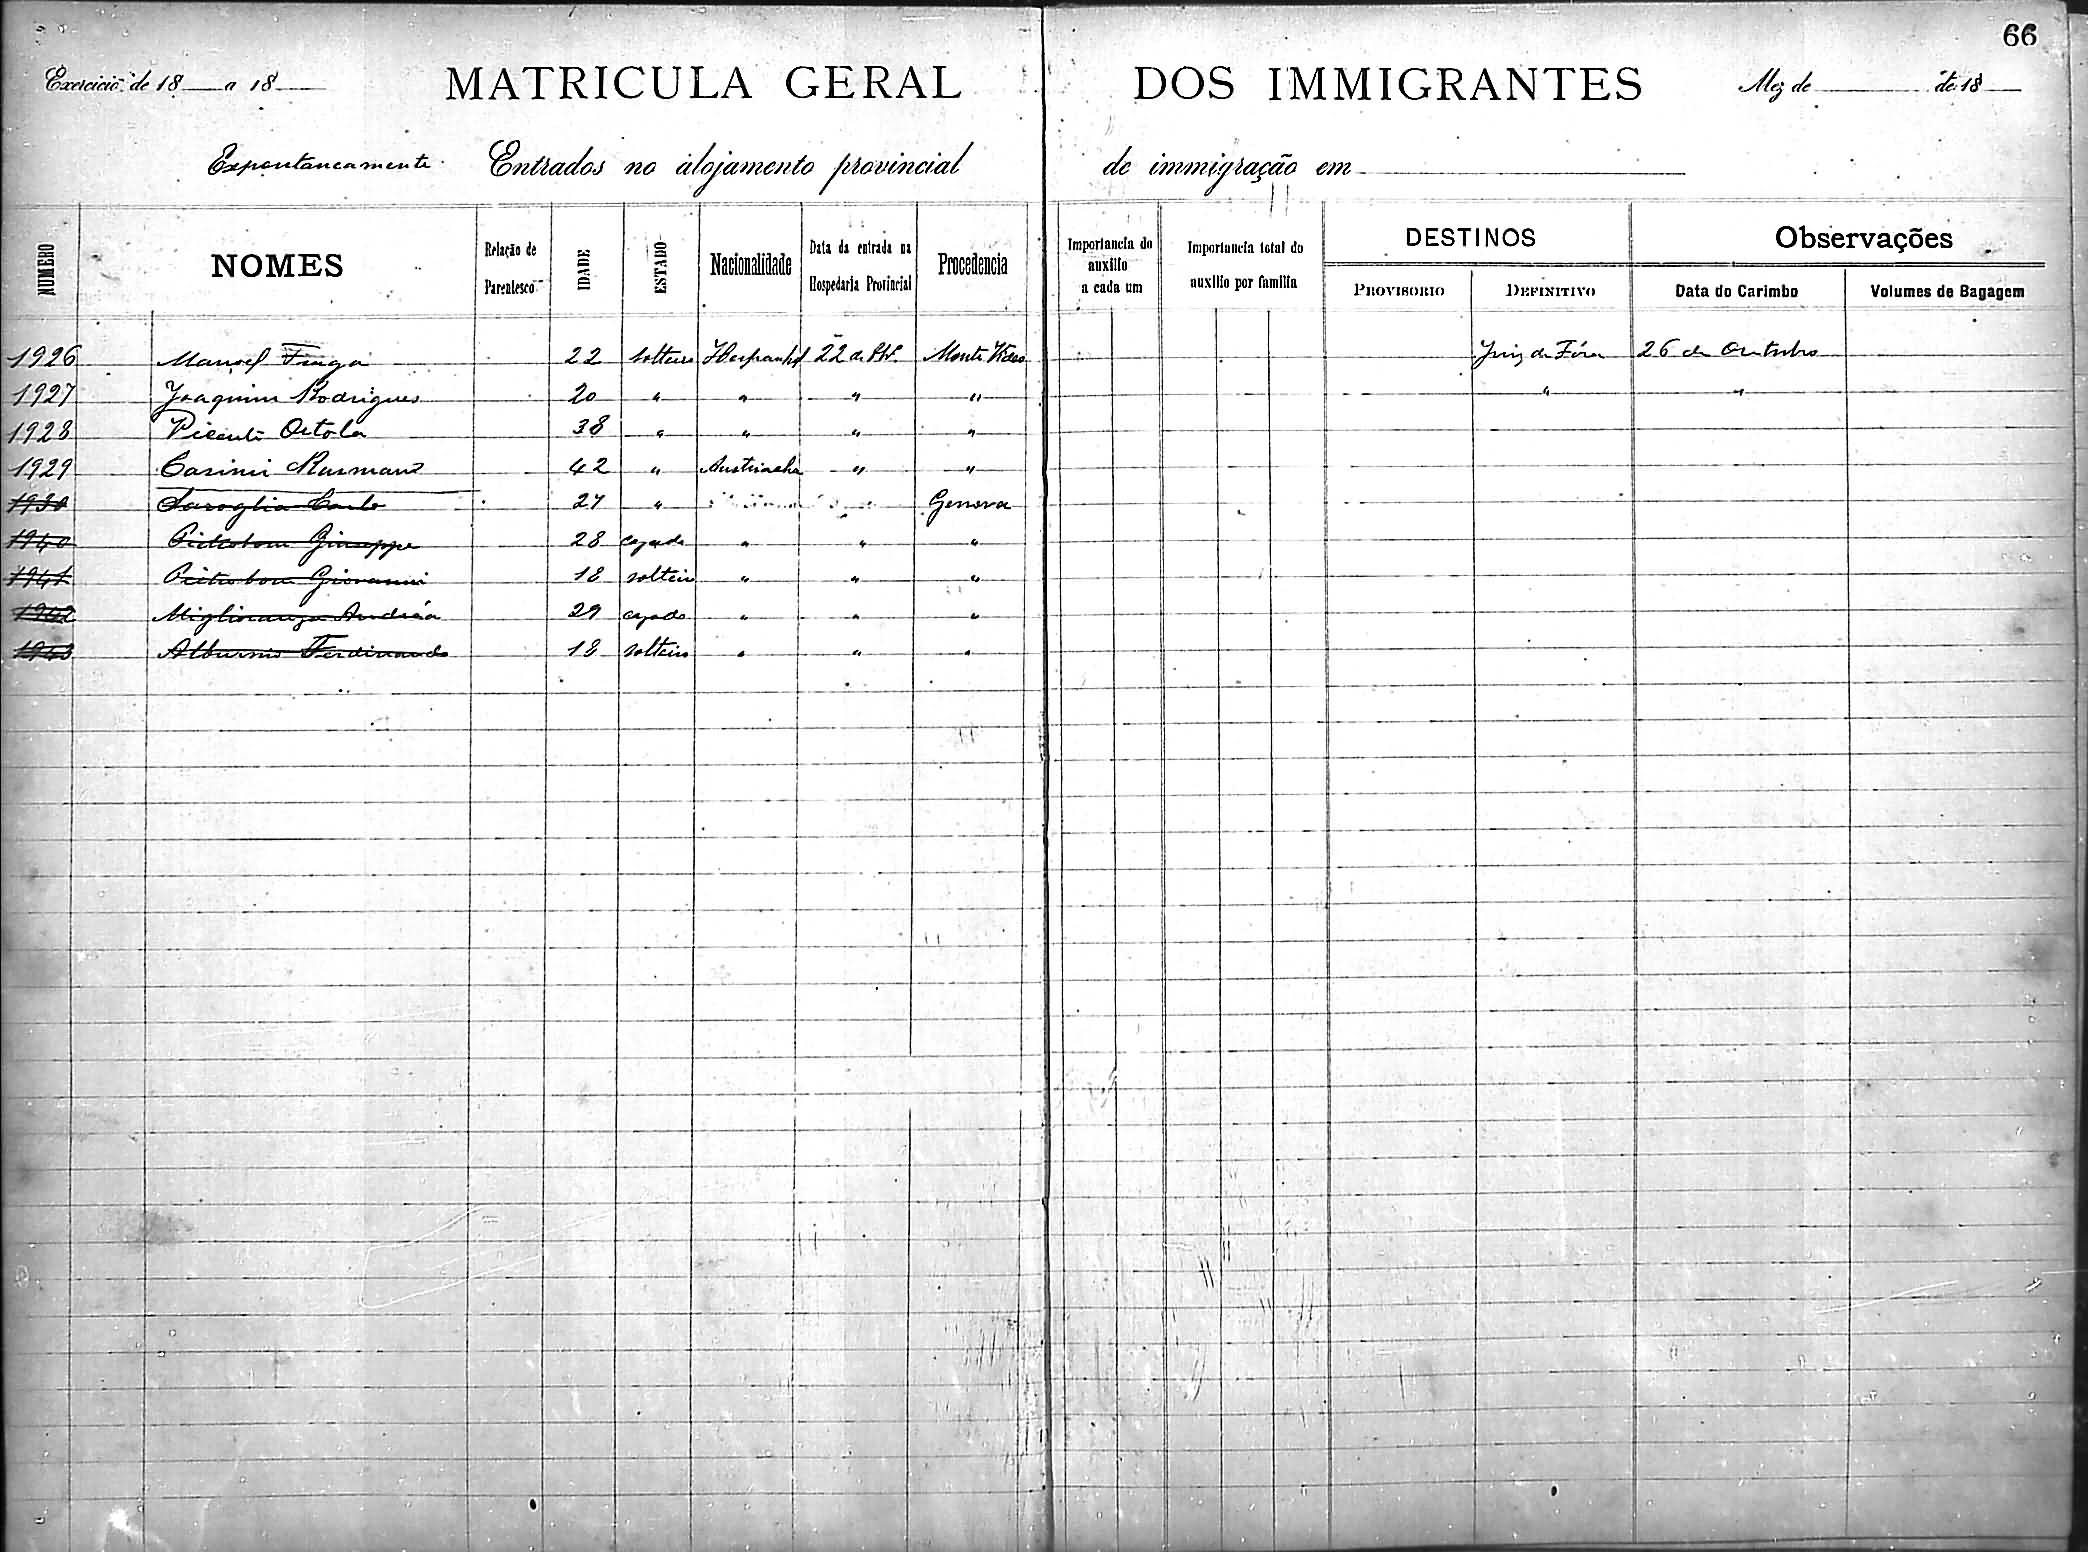 66
Exercicio de 18 a 18 MATRICULA GERAL DOS IMMIGRANTES Mez de de 18
Espontaneamente Entrados no alojamento provincial de immigração em
NUMERO NOMES Relação de Parentesco IDADE ESTADO Nacionalidade Data da entrada na Hospedaria Provincial Procedencia Importancia do auxilio a cada um Importancia total do auxilio por familia DESTINOS Observações
PROVISORIO DEFINITIVO Data do Carimbo Volumes de Bagagem
1926 Manoel Fraga 22 solteiro Hespanhol 22 de Monte Video Juiz de Fóra 26 de Outubro
1927 Joaquim Rodrigues 20 " " " " " "
1928 Vicente Ortola 38 " " " "
1929 Casimi 42 " Austriacha " "
1930 Saroglia Carlo 27 " " Genova
1940 Pietrobom Giuseppe 28 cazado " " "
1941 Pietrobom Giovanni 18 solteiro " " "
1942 Miglioranza Andréa 29 cazado " " "
1943 Ferdinando 18 solteiro " " "